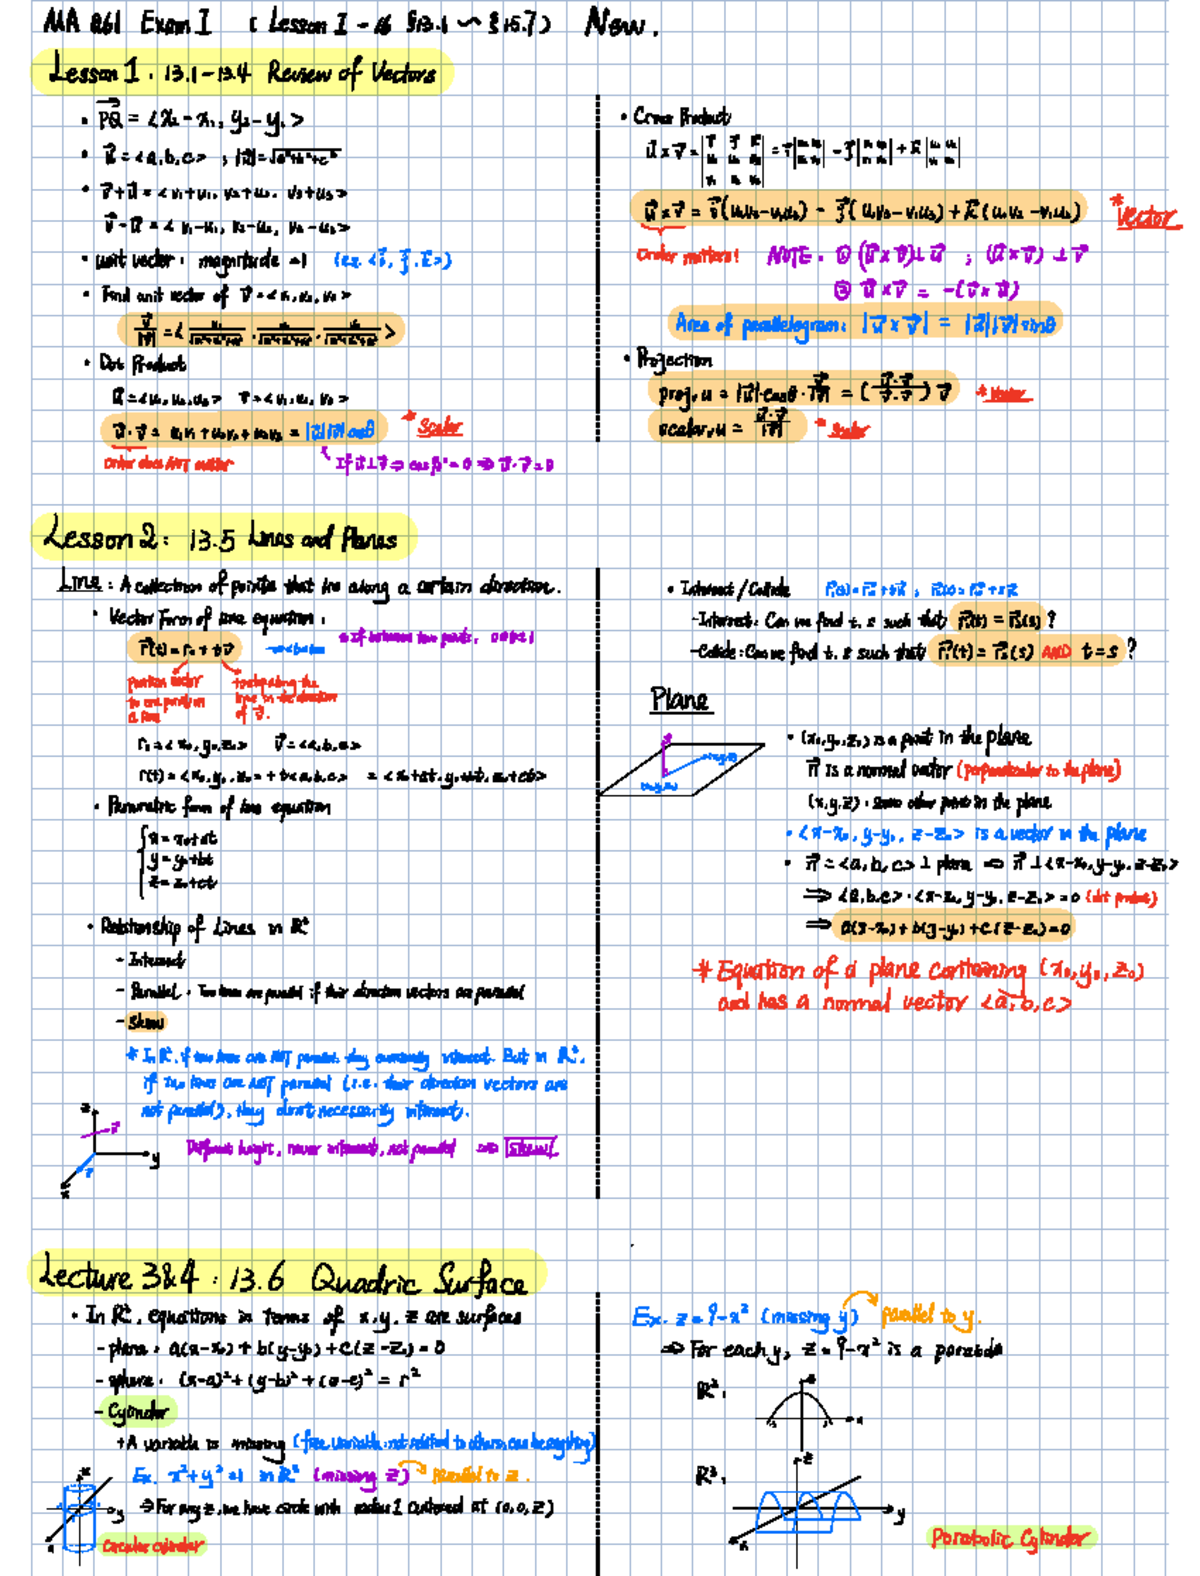 MA 261 Exam I ( Lesson 1 - 16 §13.1 ~ §15.7) New.
Lesson 1 : 13.1-13.4 Review of Vectors
• PQ→ = <x₂ - x₁, y₂ - y₁>
• u→ = <a,b,c> ; |u→| = √(a²+b²+c²)
• v→+u→ = <v₁+u₁, v₂+u₂, v₃+u₃>
v→-u→ = <v₁-u₁, v₂-u₂, v₃-u₃>
• unit vector : magnitude =1 (ex. <i→, j→, k→>)
• Find unit vector of v→ = <v₁, v₂, v₃>
• Dot Product
u→ = <u₁, u₂, u₃> v→ = <v₁, v₂, v₃>
u→·v→ = u₁v₁+u₂v₂+u₃v₃ = |u→||v→|cosθ * Scalar
Order does NOT matter
• Cross Product
u→×v→ = i→(u₂v₃-v₂u₃) - j→(u₁v₃-v₁u₃) + k→(u₁v₂-v₁u₂) * Vector
Order matters! NOTE : ① (u→×v→)⊥u→ ; (u→×v→)⊥v→
② u→×v→ = -(v→×u→)
Area of parallelogram: |u→×v→| = |u→||v→|sinθ
• Projection
projᵥu = |u→|·cosθ·v→/|v→| = (u→·v→/v→·v→) v→ * Vector
scalarᵥu = u→·v→/|v→| * Scalar
Lesson 2 : 13.5 Lines and Planes
Line : A collection of points that lie along a certain direction.
• Vector Form of line equation :
r→(t) = r₀ + tv→
* If between two points, 0≤t≤1
position vector
to one point on
a line
of v→.
r₀ = <x₀, y₀, z₀> v→ = <a,b,c>
r(t) = <x₀, y₀, z₀> + t<a,b,c> = <x₀+at, y₀+bt, z₀+ct>
• Parametric form of line equation
x = x₀+at
y = y₀+bt
z = z₀+ct
• Relationship of Lines in R³
- Intersect
- Parallel : Two lines are parallel if their direction vectors are parallel
- Skew
* In R², if two lines are NOT parallel, they eventually intersect. But in R³,
if two lines are NOT parallel (i.e. their direction vectors are
not parallel), they don't necessarily intersect.
z
y
x
Different height, never intersect, not parallel ⇒ skew!
• Intersect / Collide
- Intersect: Can we find t, s such that r→₁(t) = r→₂(s) ?
- Collide : Can we find t, s such that r→₁(t) = r→₂(s) AND t=s ?
Plane
• (x₀,y₀,z₀) is a point in the plane
n→ is a normal vector (perpendicular to the plane)
(x,y,z) : some other point in the plane
• <x-x₀, y-y₀, z-z₀> is a vector in the plane
• n→ = <a,b,c> ⊥ plane ⇒ n→ ⊥ <x-x₀, y-y₀, z-z₀>
⇒ <a,b,c>·<x-x₀, y-y₀, z-z₀> = 0 (dot product)
⇒ a(x-x₀)+b(y-y₀)+c(z-z₀)=0
* Equation of a plane containing (x₀,y₀,z₀)
and has a normal vector <a,b,c>
Lecture 3&4 : 13.6 Quadric Surface
• In R³, equations in terms of x,y,z are surfaces
- plane : a(x-x₀) + b(y-y₀) + c(z-z₀) = 0
- sphere : (x-a)²+(y-b)²+(z-c)² = r²
- Cylinder
+ A variable is missing (free variable: not related to others, can be anything)
Ex. x²+y²=1 in R³ (missing z) Parallel to z.
⇒ For any z, we have circle with radius 1 centered at (0,0,z)
z
y
x
Circular cylinder
Ex. z = 9-x² (missing y) parallel to y.
⇒ For each y, z = 9-x² is a parabola
R² :
z
x
R³ :
z
y
x
Parabolic Cylinder